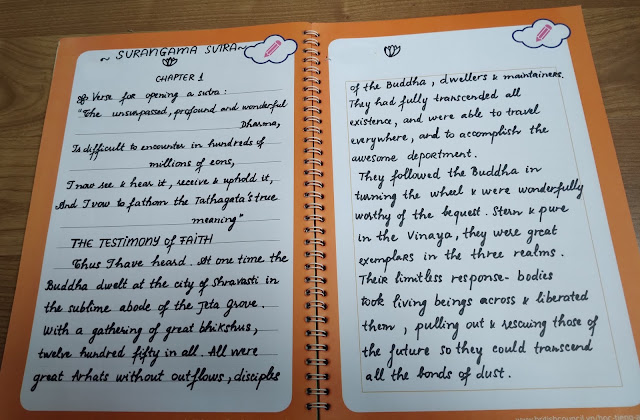 ~ SURANGAMA SUTRA ~
CHAPTER 1
Verse for opening a sutra :
"The unsurpassed, profound and wonderful
Dharma,
Is difficult to encounter in hundreds of
millions of eons,
I now see & hear it, receive & uphold it,
And I vow to fathom the Tathagata's true
meaning"
THE TESTIMONY of FAITH
Thus I have heard. At one time the
Buddha dwelt at the city of Shravasti in
the sublime abode of the Jeta Grove.
With a gathering of great bhikshus,
twelve hundred fifty in all. All were
great Arhats without outflows, disciples
of the Buddha, dwellers & maintainers.
They had fully transcended all
existence, and were able to travel
everywhere, and to accomplish the
awesome deportment.
They followed the Buddha in
turning the wheel & were wonderfully
worthy of the bequest. Stern & pure
in the Vinaya, they were great
exemplars in the three realms.
Their limitless response-bodies
took living beings across & liberated
them, pulling out & rescuing those of
the future so they could transcend
all the bonds of dust.